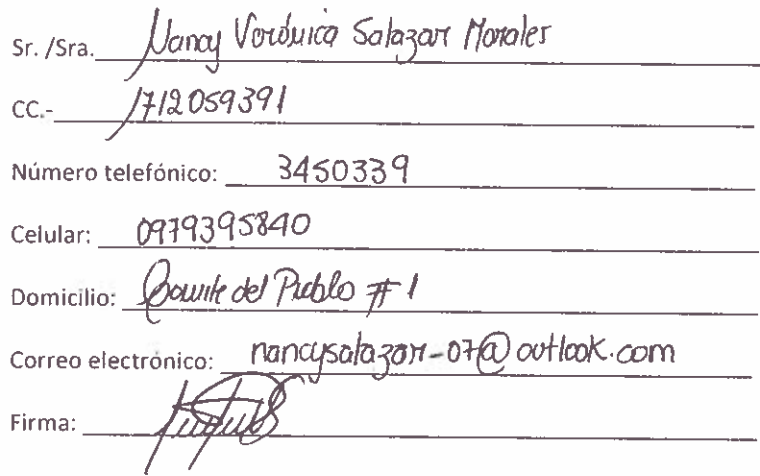 Sr. /Sra. Nancy Verónica Salazar Morales
CC.- 1712059391
Número telefónico: 3450339
Celular: 0979395840
Domicilio: Comité del Pueblo # 1
Correo electrónico: nancysalazar-07@outlook.com
Firma: